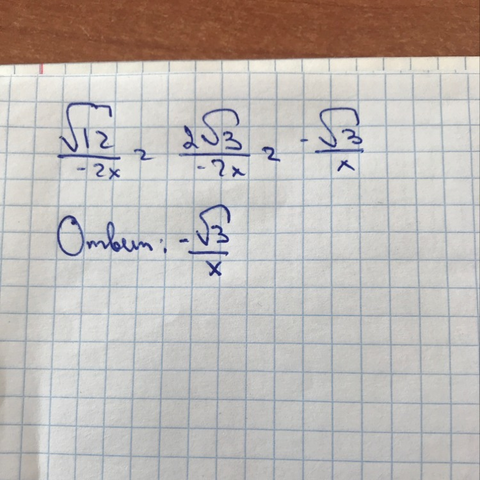 √12/-2x = 2√3/-2x = -√3/x
Ответ: -√3/x